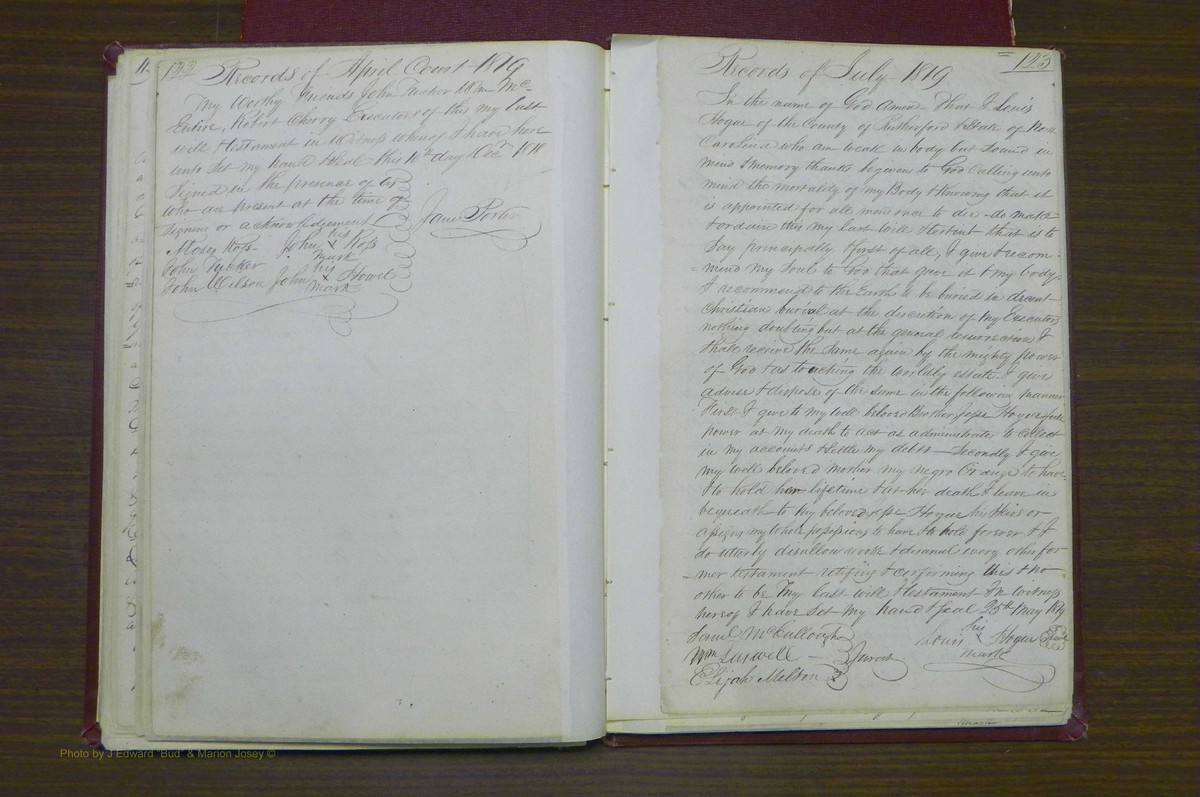 122 Records of April Court 1819
My Worthy Friends John Tucker Wm Mc-
Entire, Robert Cherry Executors of this my last
will & testament in Witness whereof I have here
unto set my hand & Seal this 10th day Decr 1818
Signed in the presence of us
who are present at the time of
signing or acknowledgement
James Porter
Moses Ross John his X mark Ross
John Tucker
John Wilson John his X mark Howel
Records of July 1819 123
In the name of God Amen That I Louis
Hogue of the County of Rutherford & State of North
Carolina who am weak in body but Sound in
mind & memory thanks be given to God Calling unto
mind the mortality of my Body & knowing that it
is appointed for all men once to die do make
& ordain this my last Will & testament that is to
say principally & first of all, I give & recom-
=mend my Soul to God that gave it & my body
I recommend to the Earth to be buried in decent
Christian burial at the discretion of my Executors
nothing doubting but at the general ressurection I
shall receive the same again by the mighty power
of God & as touching the worldly estate I give
advise & dispose of the same in the following manner
First I give to my well beloved Brother Jesse Hogue full
power at my death to act as administrator to collect
in my accounts & settle my debts — Secondly I give
my well beloved mother my negro Orange to have
& to hold her lifetime & at her death I leave in
bequeath to my beloved Jesse Hogue his Heirs or
assigns my whole possessions to have & to hold forever & I
do utterly disallow revoke & disanul every other for-
-mer testament ratifing & confirming this & no
other to be my last will & testament In witness
hereof I have set my hand & seal 25th May 1819
Saml McKullough
Louis his X mark Hogue Seal
Wm
Jurat
Elijah Melton
Photo by J Edward "Bud" & Marion Josey ©